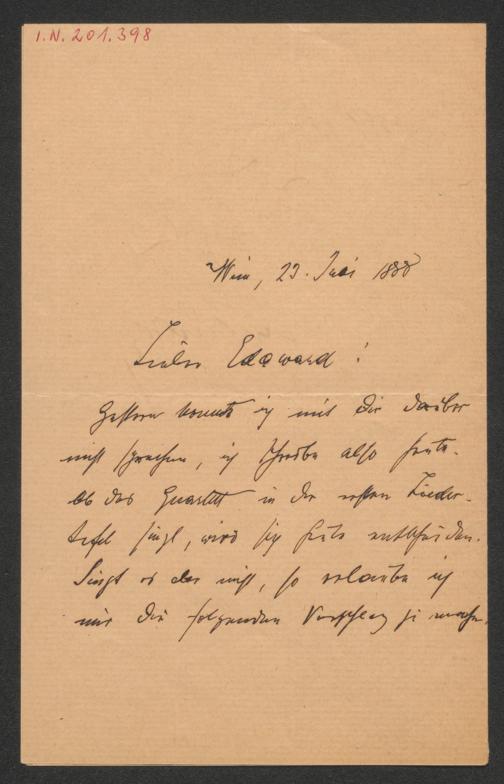 I.N. 201.398
Wien, 23. Juni 1888
Lieber Edward!
Gestern konnte ich mit Dir darüber
nicht sprechen, ich schreibe also heute.
Ob das Quartett in der ersten Lieder-
tafel singt, wird sich heute entscheiden.
Singt es aber nicht, so erlaube ich
mir Dir folgenden Vorschlag zu machen.